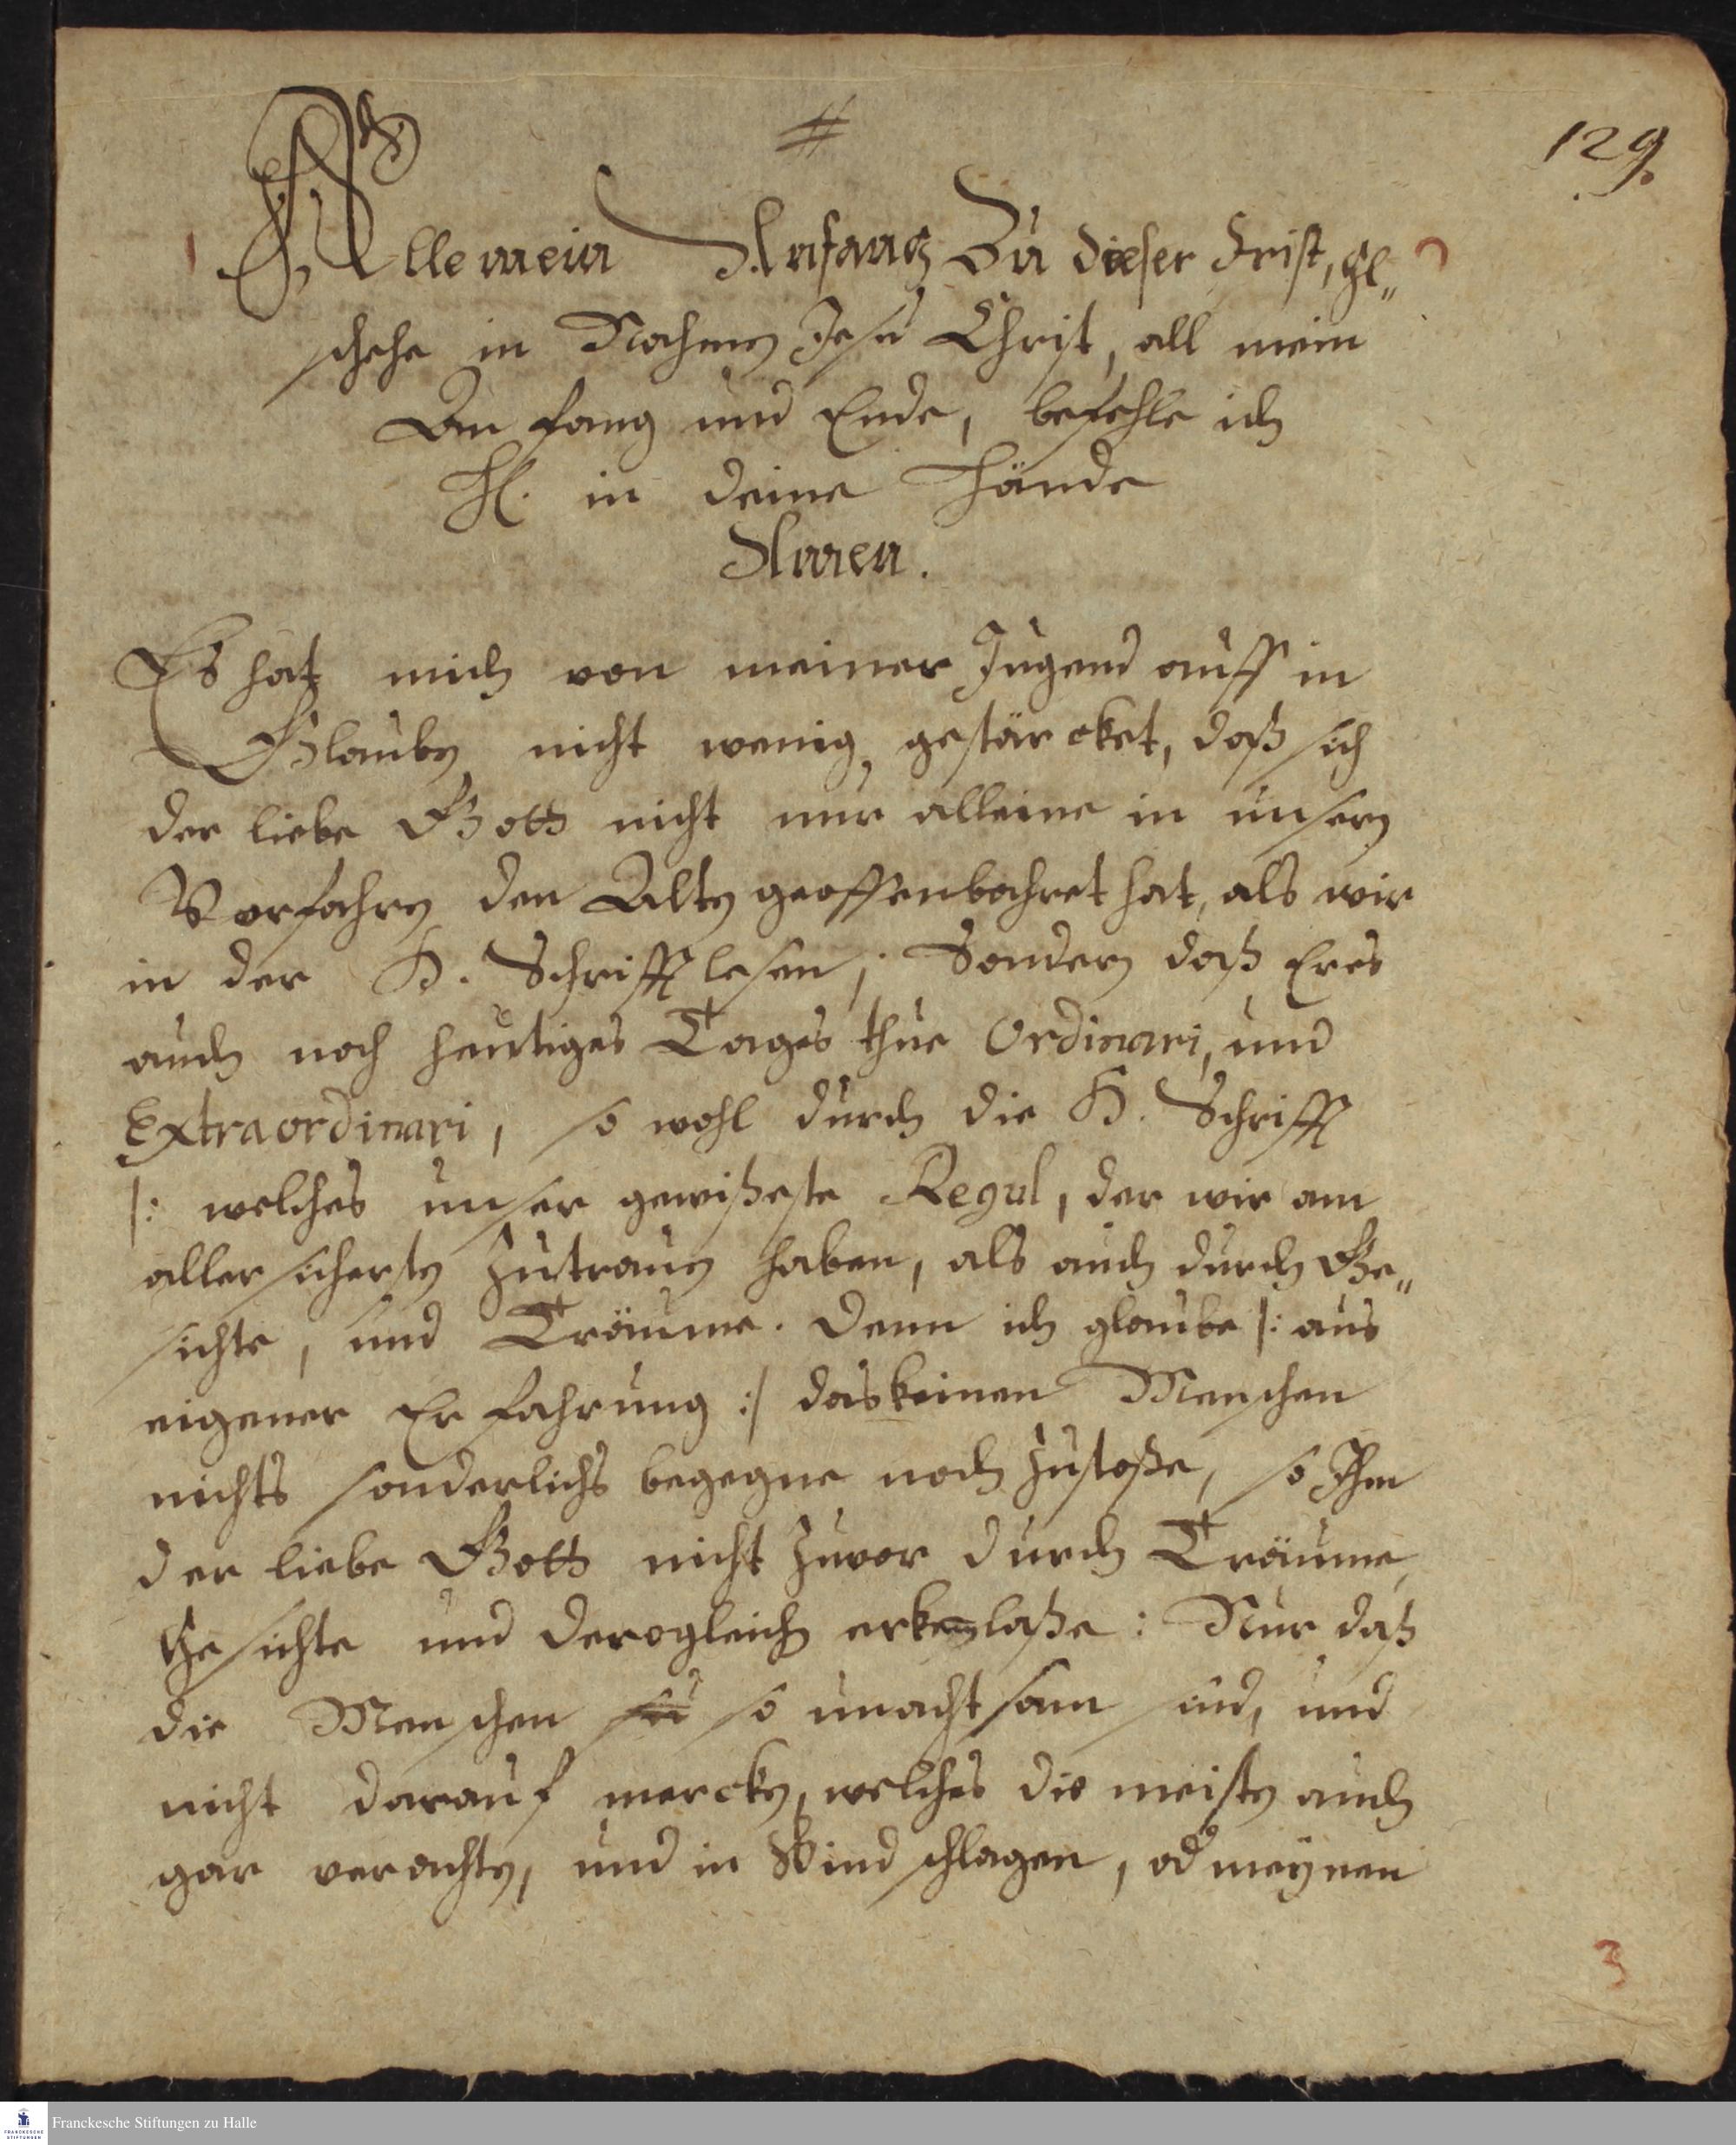 #
129.
Alle mein Anfang Zu dieser Frist, Ge„
schehe in Nahmen Jesu Christ, all mein
An fang und Ende, befehle ich
H. in deine Hände
Amen.
Es hat mich von meiner Jugend auff in
Glauben nicht wenig gestärcket, daß sich
der liebe Gott nicht nur alleine in unsern
Vorfahren den Alten geoffenbahret hat, als wir
in der H. Schrifft lesen; Sondern daß Er es
auch noch heutiges Tages thue Ordinari, und
Extraordinari, so wohl durch die H. Schrifft
|: welches unser gewißeste Regul, der wir am
aller sichersten zutrauen haben, als auch durch Ge„
sichte, und Träume. Denn ich glaube |: aus
eigener Er fahrung :| das keinen Menschen
nichts sonderlichs begegne noch zustoße, so Ihm
der liebe Gott nicht zuvor durch Träume,
Gesichte und derogleichen erkenen laße: Nur daß
die Menschen so unachtsam sind, und
nicht darauf mercken, welches die meisten auch
gar verachten, und in Wind schlagen, od meynen
3
Franckesche Stiftungen zu Halle